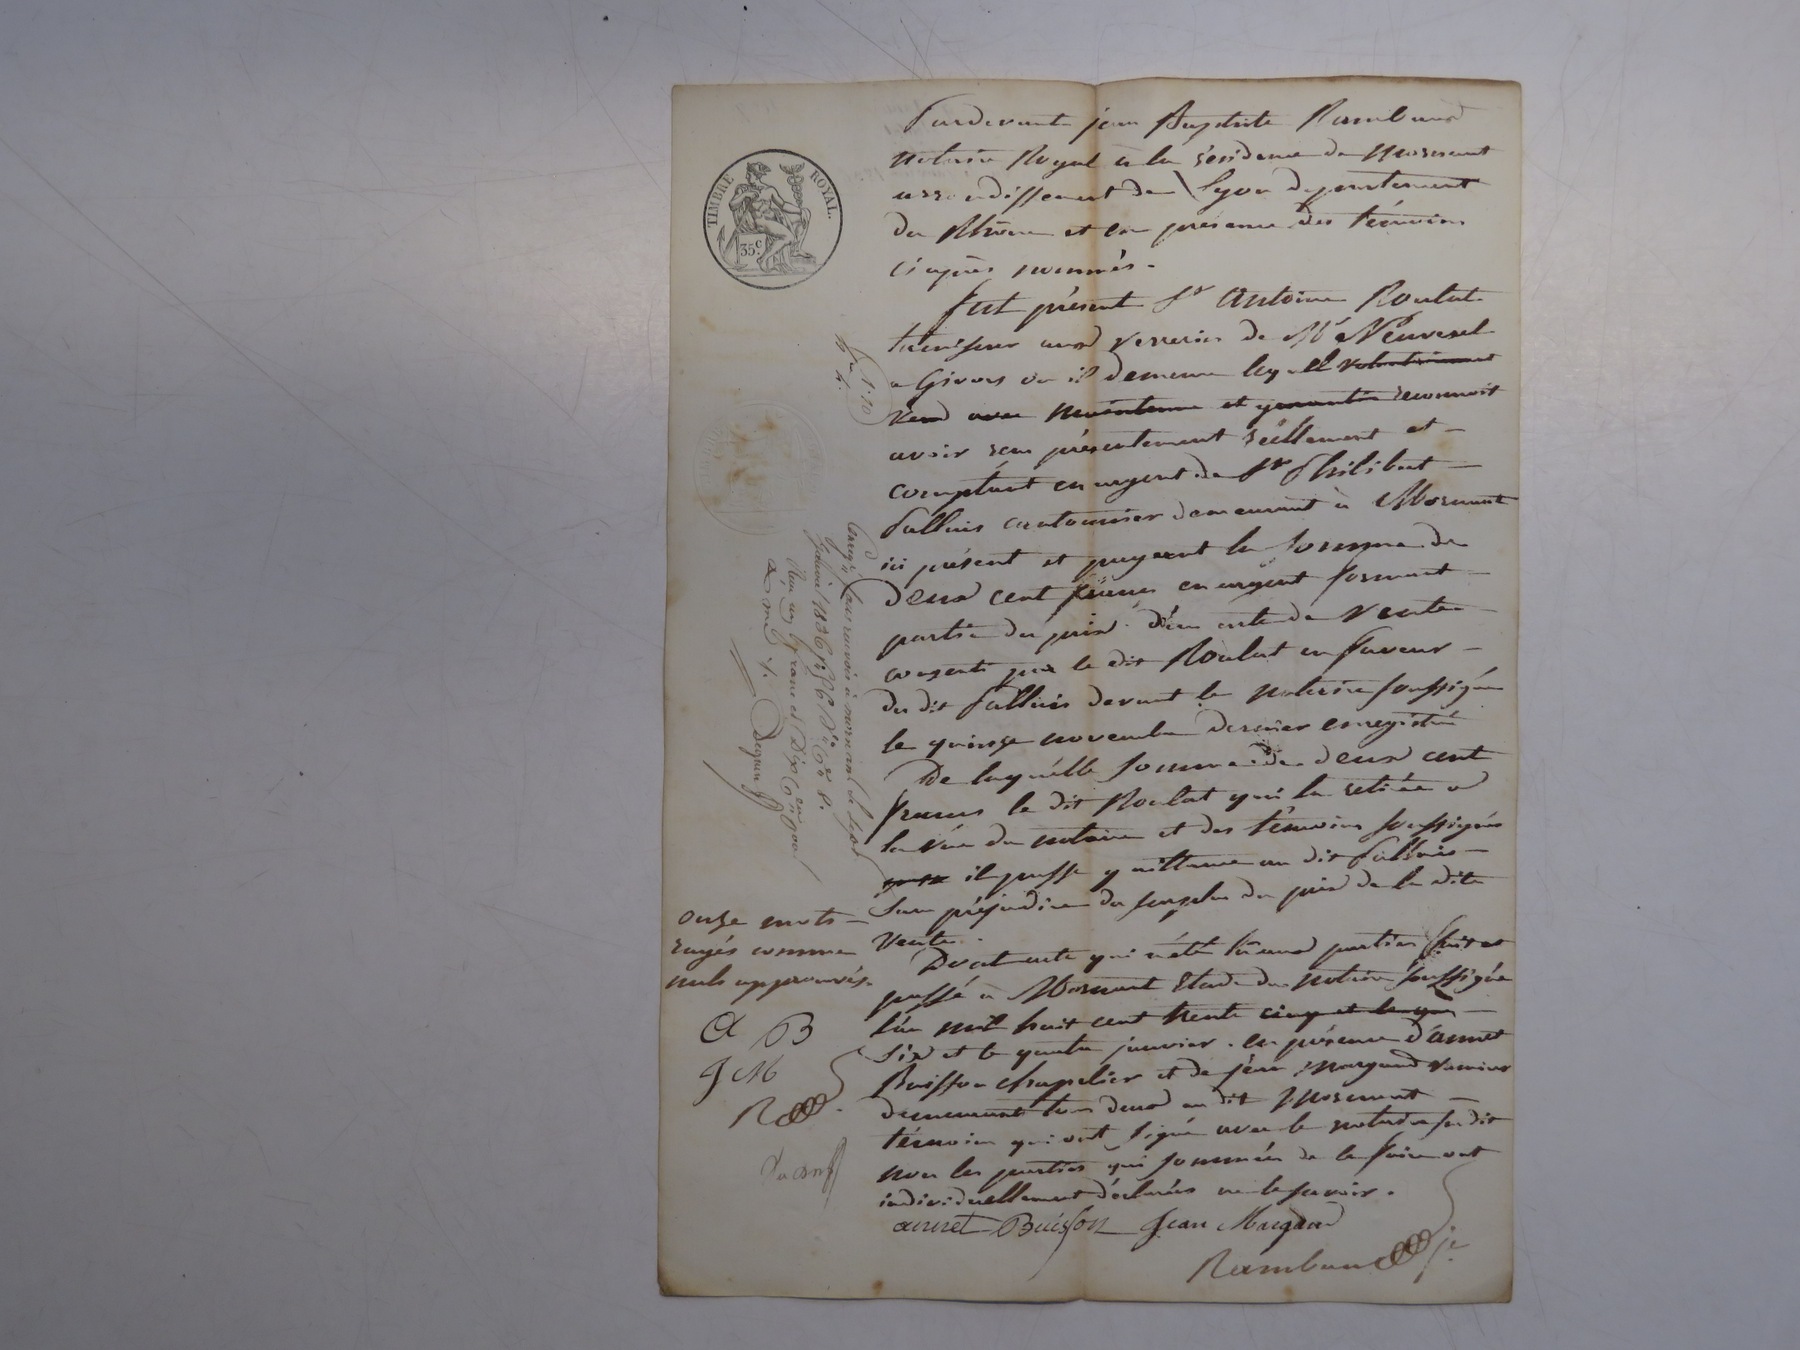 TIMBRE ROYAL.
35.c
Pardevant jean Baptiste Rambaud
notaire Royal a la residence de Mornant
arrondissement de Lyon departement
du Rhône et en presence des témoins
ci après nommés.
Fut présent Sr Antoine Roulat
tamiseur aux verreries de Mr Neuvesel
a Givors ou il demeure lequel volontairement
vend avec maintenue et garantie reconnoit
avoir recu présentement réellement et
comptant en argent de Sr Philibert
Palluis cantonnier demeurant à Mornant
ici présent et payant la somme de
deux cent francs en argent formant
partie du prix d'un acte de vente
consenti par le dit Roulat en faveur
du dit Palluis devant le notaire soussigné
le quinze novembre dernier enregistré
De laquelle somme de deux cent
francs le dit Roulat qui la retirée a
la vue du notaire et des témoins soussignés
il passe quittance au dit Palluis
sans préjudice du surplus du prix de la dite
vente.
Dont acte qui a été lu aux parties fait et
passé à Mornant Etude du notaire soussigné
l'an mil huit cent trente cinq et le
six et le quatre janvier. en présence d'annet
Buisson chapelier et de jean Margand
demeurant tous deux au dit Mornant
témoins qui ont signé avec le notaire susdit
non les parties qui sommées de le faire ont
individuellement déclarées ne le savoir.
annet Buisson Jean Margand
Rambaud
1.10
Enregistré sans renvois à mornant le sept
janvier 1836
Reçu un franc et Dix cmes pour
onze mots
rayés comme
nuls approuvés.
A B
J M
R